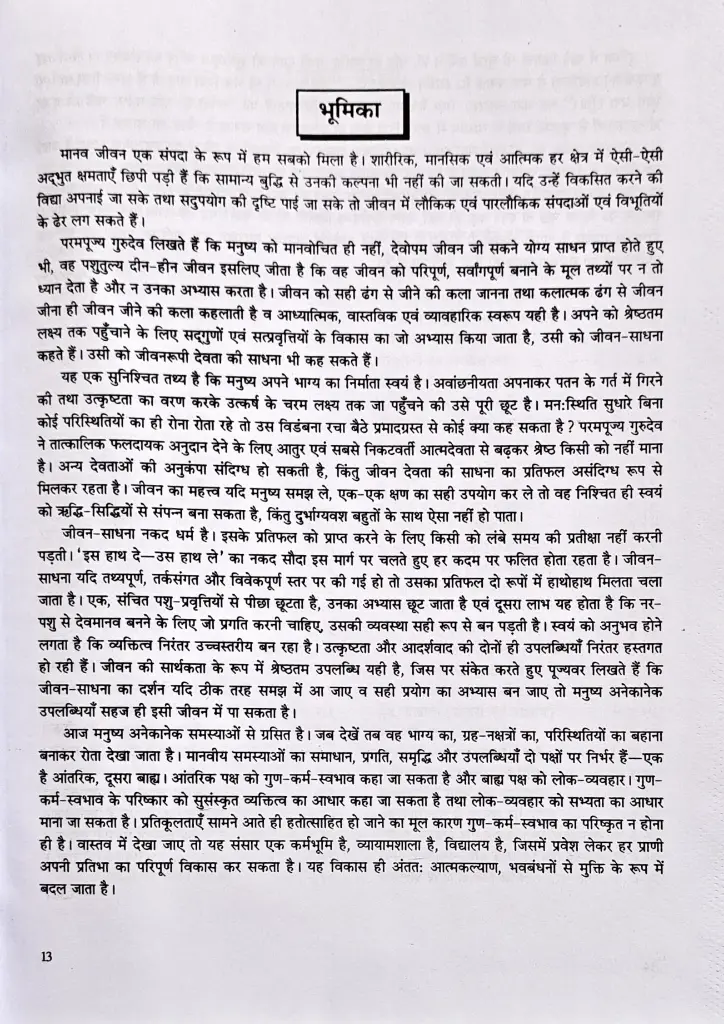 भूमिका
मानव जीवन एक संपदा के रूप में हम सबको मिला है। शारीरिक, मानसिक एवं आत्मिक हर क्षेत्र में ऐसी-ऐसी
अद्भुत क्षमताएँ छिपी पड़ी हैं कि सामान्य बुद्धि से उनकी कल्पना भी नहीं की जा सकती। यदि उन्हें विकसित करने की
विद्या अपनाई जा सके तथा सदुपयोग की दृष्टि पाई जा सके तो जीवन में लौकिक एवं पारलौकिक संपदाओं एवं विभूतियों
के ढेर लग सकते हैं।
परमपूज्य गुरुदेव लिखते हैं कि मनुष्य को मानवोचित ही नहीं, देवोपम जीवन जी सकने योग्य साधन प्राप्त होते हुए
भी, वह पशुतुल्य दीन-हीन जीवन इसलिए जीता है कि वह जीवन को परिपूर्ण, सर्वांगपूर्ण बनाने के मूल तथ्यों पर न तो
ध्यान देता है और न उनका अभ्यास करता है। जीवन को सही ढंग से जीने की कला जानना तथा कलात्मक ढंग से जीवन
जीना ही जीवन जीने की कला कहलाती है व आध्यात्मिक, वास्तविक एवं व्यावहारिक स्वरूप यही है। अपने को श्रेष्ठतम
लक्ष्य तक पहुँचाने के लिए सद्‌गुणों एवं सत्प्रवृत्तियों के विकास का जो अभ्यास किया जाता है, उसी को जीवन-साधना
कहते हैं। उसी को जीवनरूपी देवता की साधना भी कह सकते हैं।
यह एक सुनिश्चित तथ्य है कि मनुष्य अपने भाग्य का निर्माता स्वयं है। अवांछनीयता अपनाकर पतन के गर्त में गिरने
की तथा उत्कृष्टता का वरण करके उत्कर्ष के चरम लक्ष्य तक जा पहुँचने की उसे पूरी छूट है। मन:स्थिति सुधारे बिना
कोई परिस्थितियों का ही रोना रोता रहे तो उस विडंबना रचा बैठे प्रमादग्रस्त से कोई क्या कह सकता है? परमपूज्य गुरुदेव
ने तात्कालिक फलदायक अनुदान देने के लिए आतुर एवं सबसे निकटवर्ती आत्मदेवता से बढ़कर श्रेष्ठ किसी को नहीं माना
है। अन्य देवताओं की अनुकंपा संदिग्ध हो सकती है, किंतु जीवन देवता की साधना का प्रतिफल असंदिग्ध रूप से
मिलकर रहता है। जीवन का महत्त्व यदि मनुष्य समझ ले, एक-एक क्षण का सही उपयोग कर ले तो वह निश्चित ही स्वयं
को ऋद्धि-सिद्धियों से संपन्न बना सकता है, किंतु दुर्भाग्यवश बहुतों के साथ ऐसा नहीं हो पाता।
जीवन-साधना नकद धर्म है। इसके प्रतिफल को प्राप्त करने के लिए किसी को लंबे समय की प्रतीक्षा नहीं करनी
पड़ती। 'इस हाथ दे—उस हाथ ले' का नकद सौदा इस मार्ग पर चलते हुए हर कदम पर फलित होता रहता है। जीवन-
साधना यदि तथ्यपूर्ण, तर्कसंगत और विवेकपूर्ण स्तर पर की गई हो तो उसका प्रतिफल दो रूपों में हाथोहाथ मिलता चला
जाता है। एक, संचित पशु-प्रवृत्तियों से पीछा छूटता है, उनका अभ्यास छूट जाता है एवं दूसरा लाभ यह होता है कि नर-
पशु से देवमानव बनने के लिए जो प्रगति करनी चाहिए, उसकी व्यवस्था सही रूप से बन पड़ती है। स्वयं को अनुभव होने
लगता है कि व्यक्तित्व निरंतर उच्चस्तरीय बन रहा है। उत्कृष्टता और आदर्शवाद की दोनों ही उपलब्धियाँ निरंतर हस्तगत
हो रही हैं। जीवन की सार्थकता के रूप में श्रेष्ठतम उपलब्धि यही है, जिस पर संकेत करते हुए पूज्यवर लिखते हैं कि
जीवन-साधना का दर्शन यदि ठीक तरह समझ में आ जाए व सही प्रयोग का अभ्यास बन जाए तो मनुष्य अनेकानेक
उपलब्धियाँ सहज ही इसी जीवन में पा सकता है।
आज मनुष्य अनेकानेक समस्याओं से ग्रसित है। जब देखें तब वह भाग्य का, ग्रह-नक्षत्रों का, परिस्थितियों का बहाना
बनाकर रोता देखा जाता है। मानवीय समस्याओं का समाधान, प्रगति, समृद्धि और उपलब्धियाँ दो पक्षों पर निर्भर हैं—एक
है आंतरिक, दूसरा बाह्य। आंतरिक पक्ष को गुण-कर्म-स्वभाव कहा जा सकता है और बाह्य पक्ष को लोक-व्यवहार। गुण-
कर्म-स्वभाव के परिष्कार को सुसंस्कृत व्यक्तित्व का आधार कहा जा सकता है तथा लोक-व्यवहार को सभ्यता का आधार
माना जा सकता है। प्रतिकूलताएँ सामने आते ही हतोत्साहित हो जाने का मूल कारण गुण-कर्म-स्वभाव का परिष्कृत न होना
ही है। वास्तव में देखा जाए तो यह संसार एक कर्मभूमि है, व्यायामशाला है, विद्यालय है, जिसमें प्रवेश लेकर हर प्राणी
अपनी प्रतिभा का परिपूर्ण विकास कर सकता है। यह विकास ही अंतत: आत्मकल्याण, भवबंधनों से मुक्ति के रूप में
बदल जाता है।
13